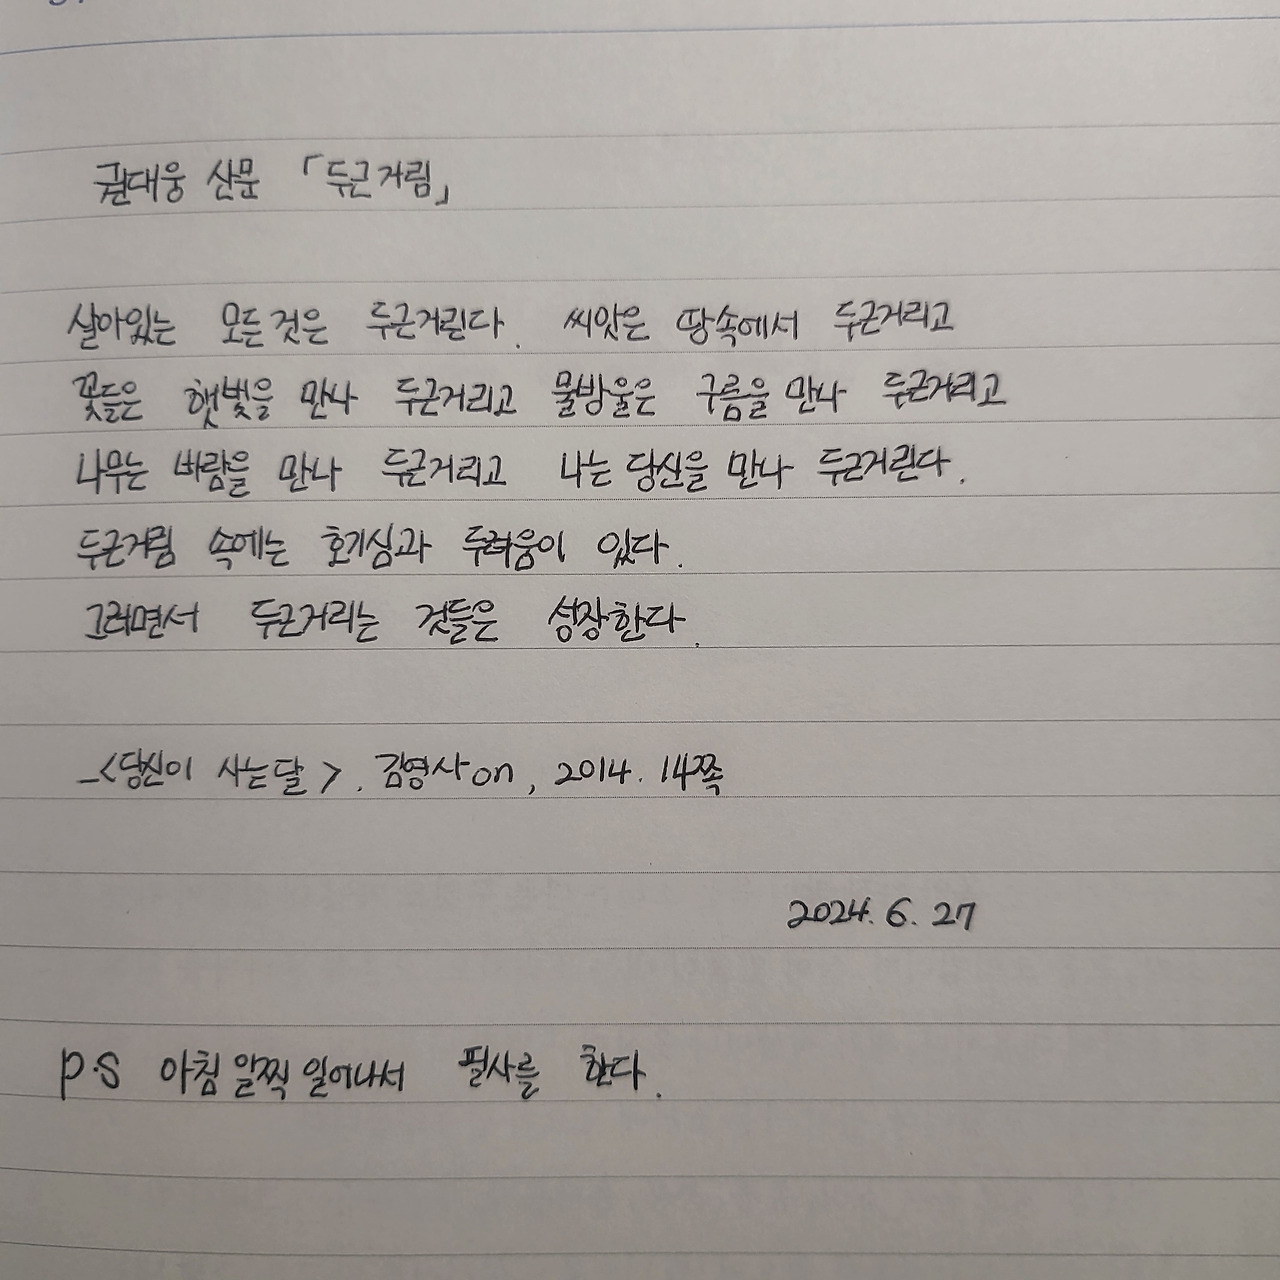 권대웅 산문 「두근거림」
살아있는 모든것은 두근거린다. 씨앗은 땅속에서 두근거리고
꽃들은 햇빛을 만나 두근거리고 물방울은 구름을 만나 두근거리고
나무는 바람을 만나 두근거리고 나는 당신을 만나 두근거린다.
두근거림 속에는 호기심과 두려움이 있다.
그러면서 두근거리는 것들은 성장한다.
_<당신이 사는 달>. 김영사on, 2014. 14쪽
2024. 6. 27
p.s 아침 일찍 일어나서 필사를 한다.